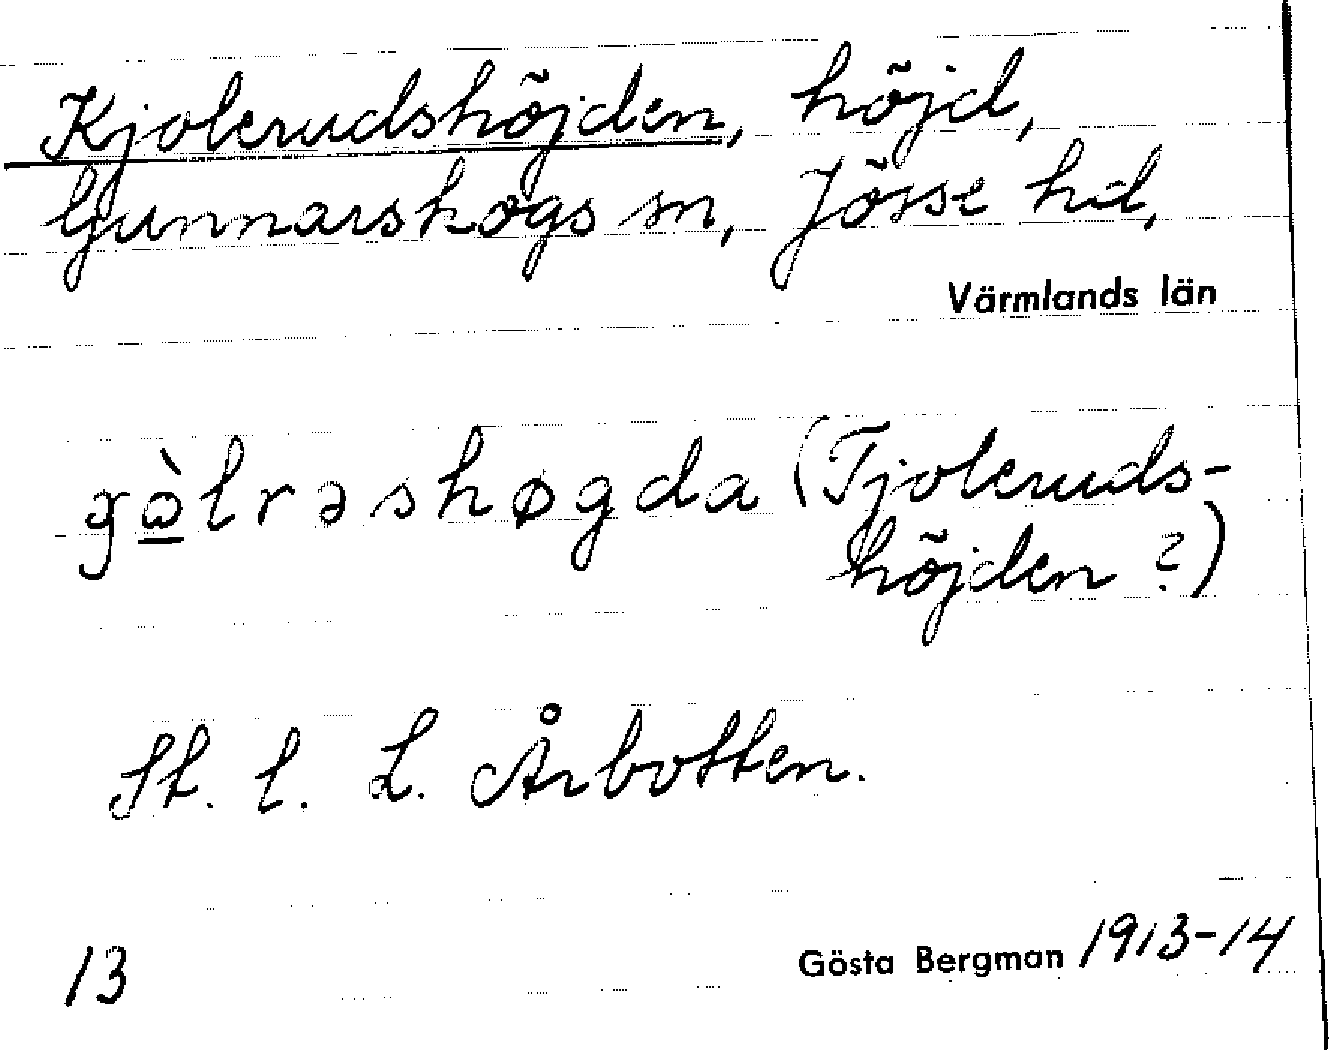 Kjolerudshöjden, höjd,
Gunnarskogs sn, Jösse hd,
Värmlands län
gɷ̀lrəshøgda (Tjoleruds-
höjden?)
St. l. L. Årbotten.
13
Gösta Bergman 1913-14